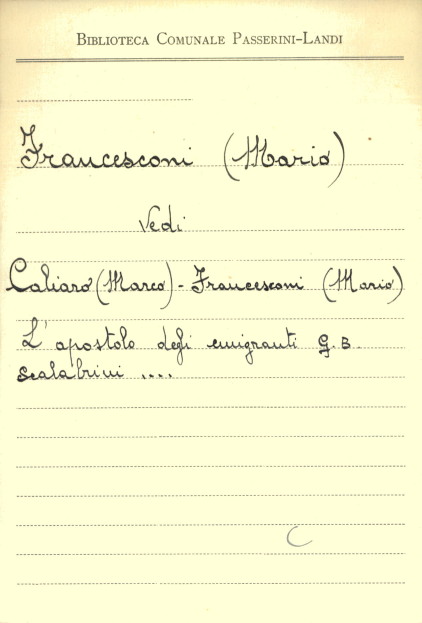 BIBLIOTECA COMUNALE PASSERINI-LANDI
Francesconi (Mario)
Vedi
Caliaro (Marco) - Francesconi (Mario)
L'apostolo degli emigranti G. B.
Scalabrini ....
C